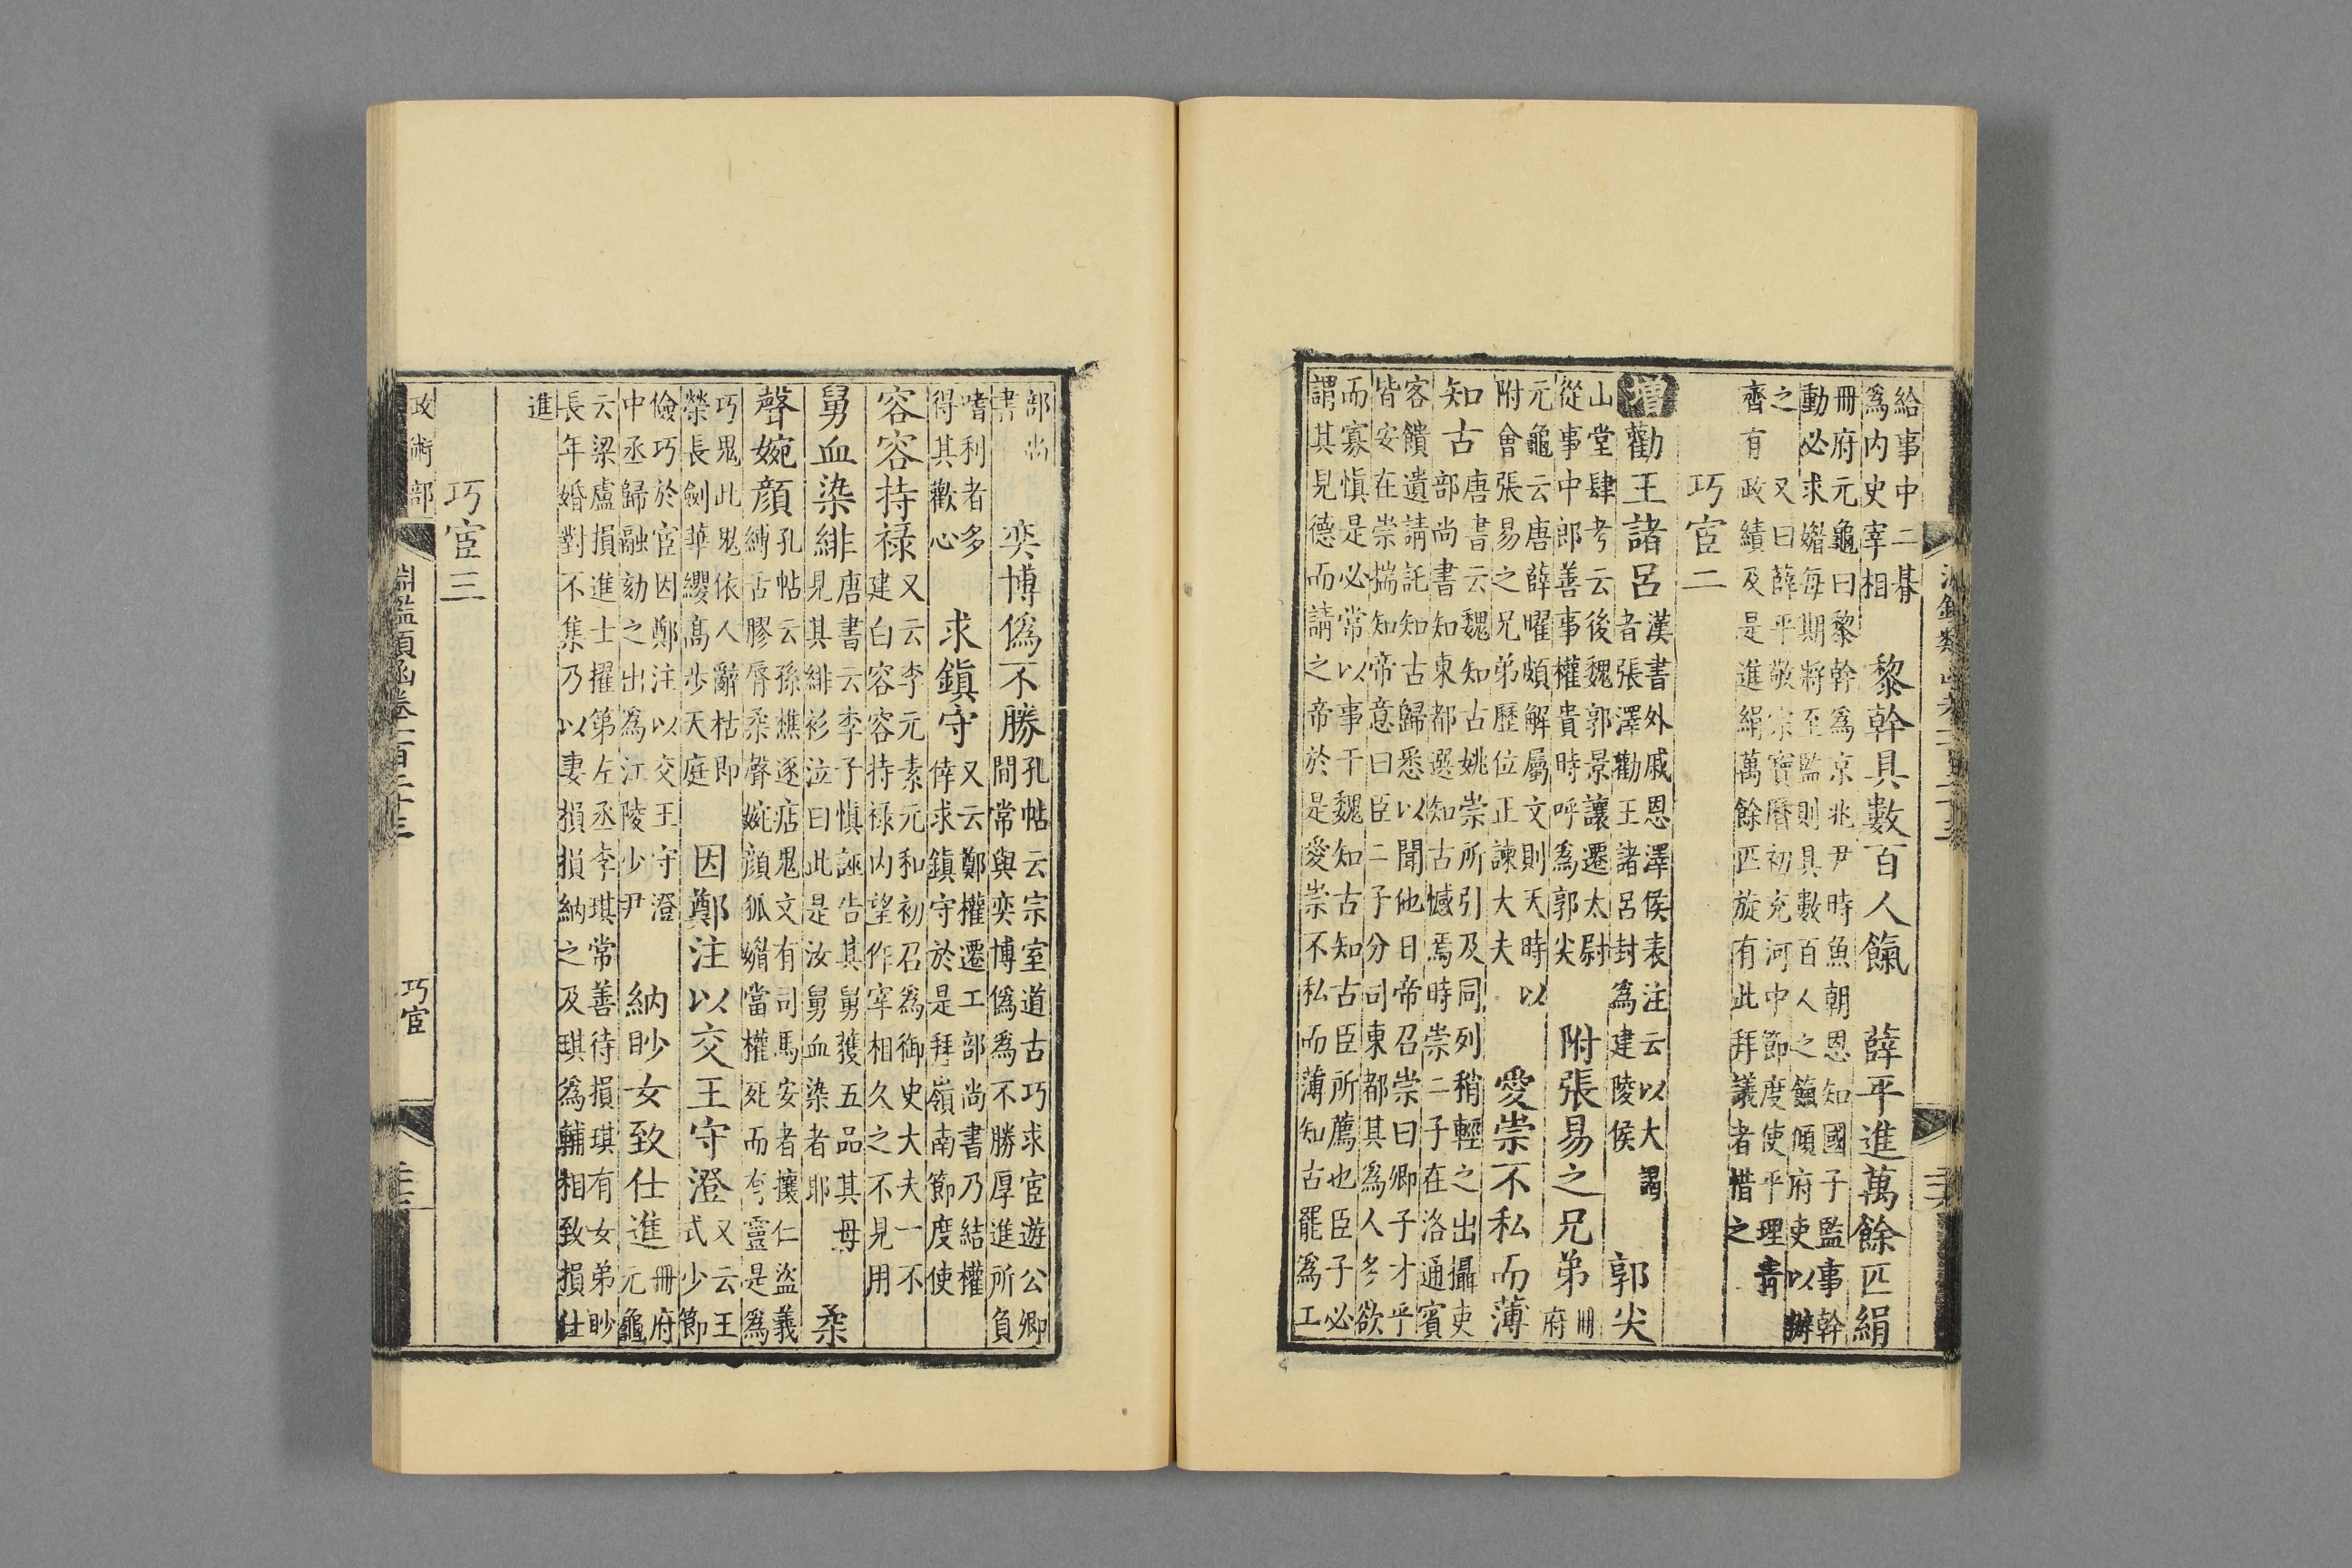 給事中二朞
爲内史宰相
黎幹具數百人餼
冊府元龜曰黎幹爲京兆尹時魚朝恩知國子監事幹
動必求媚每期將至監則具數百人之餼傾府吏以辦
之
薛平進萬餘匹絹
又曰薛平敬宗寶曆初充河中節度使平理青
齊有政績及是進絹萬餘匹旋有此拜議者惜之
巧宦二
增勸王諸呂
漢書外戚恩澤侯表注云以大謁
者張澤勸王諸呂封爲建陵侯
郭尖
山堂肆考云後魏郭景讓遷太尉
從事中郎善事權貴時呼爲郭尖
附張易之兄弟
冊府
元龜云唐薛曜頗解屬文則天時以
附會張易之兄弟歷位正諫大夫
愛崇不私而薄
知古
唐書云魏知古姚崇所引及同列稍輕之出攝吏
部尚書知東都選知古憾焉時崇二子在洛通賓
客饋遺請託知古歸悉以聞他日帝召崇曰卿子才乎
皆安在崇揣知帝意曰臣二子分司東都其爲人多欲
而寡慎是必常以事干魏知古知古臣所薦也臣子必
謂其見德而請之帝於是愛崇不私而薄知古罷爲工
部尚
書
奕博僞不勝
孔帖云宗室道古巧求宦遊公卿
間常與奕博僞爲不勝厚進所負
嗜利者多
得其歡心
求鎮守
又云鄭權遷工部尚書乃結權
倖求鎮守於是拜嶺南節度使
容容持祿
又云李元素元和初召爲御史大夫一不
建白容容持祿内望作宰相久之不見用
舅血染緋
唐書云李子慎誣告其舅獲五品其母
見其緋衫泣曰此是汝舅血染者耶
柔
聲婉顏
孔帖云孫樵逐痁鬼文有司馬安者攘仁盜義
縛舌膠脣柔聲婉顏狐媚當權死而有靈是爲
巧鬼此鬼依人辭枯即
榮長劍華纓高步天庭
因鄭注以交王守澄
又云王
式少節
儉巧於宦因鄭注以交王守澄
中丞歸融劾之出爲江陵少尹
納眇女致仕進
冊府
元龜
云梁盧損進士擢第左丞李琪常善待損琪有女弟眇
長年婚對不集乃以妻損損納之及琪爲輔相致損仕
進
巧宦三
政術部
淵鑑類函卷一百二十三
巧宦